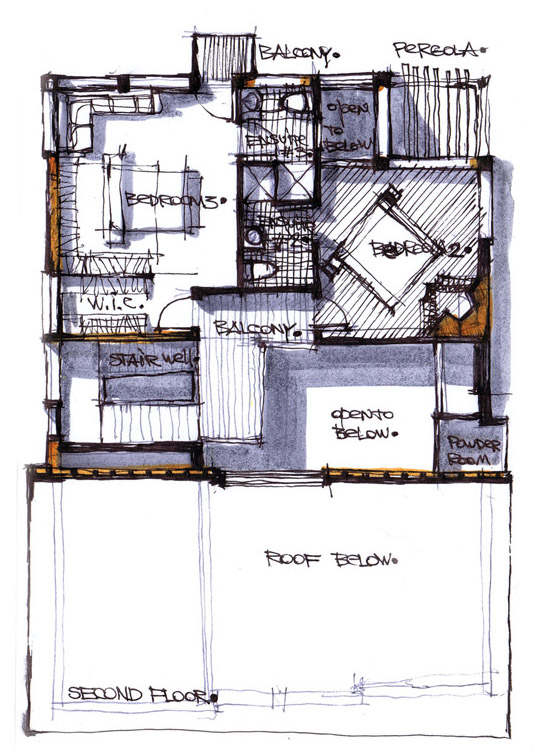 BALCONY.
PERGOLA.
OPEN
TO
BELOW
ENSUITE
BEDROOM 3.
ENSUITE
BEDROOM 2.
W.I.C.
BALCONY.
STAIR WELL.
OPEN TO
BELOW.
POWDER
ROOM
ROOF BELOW.
SECOND FLOOR.